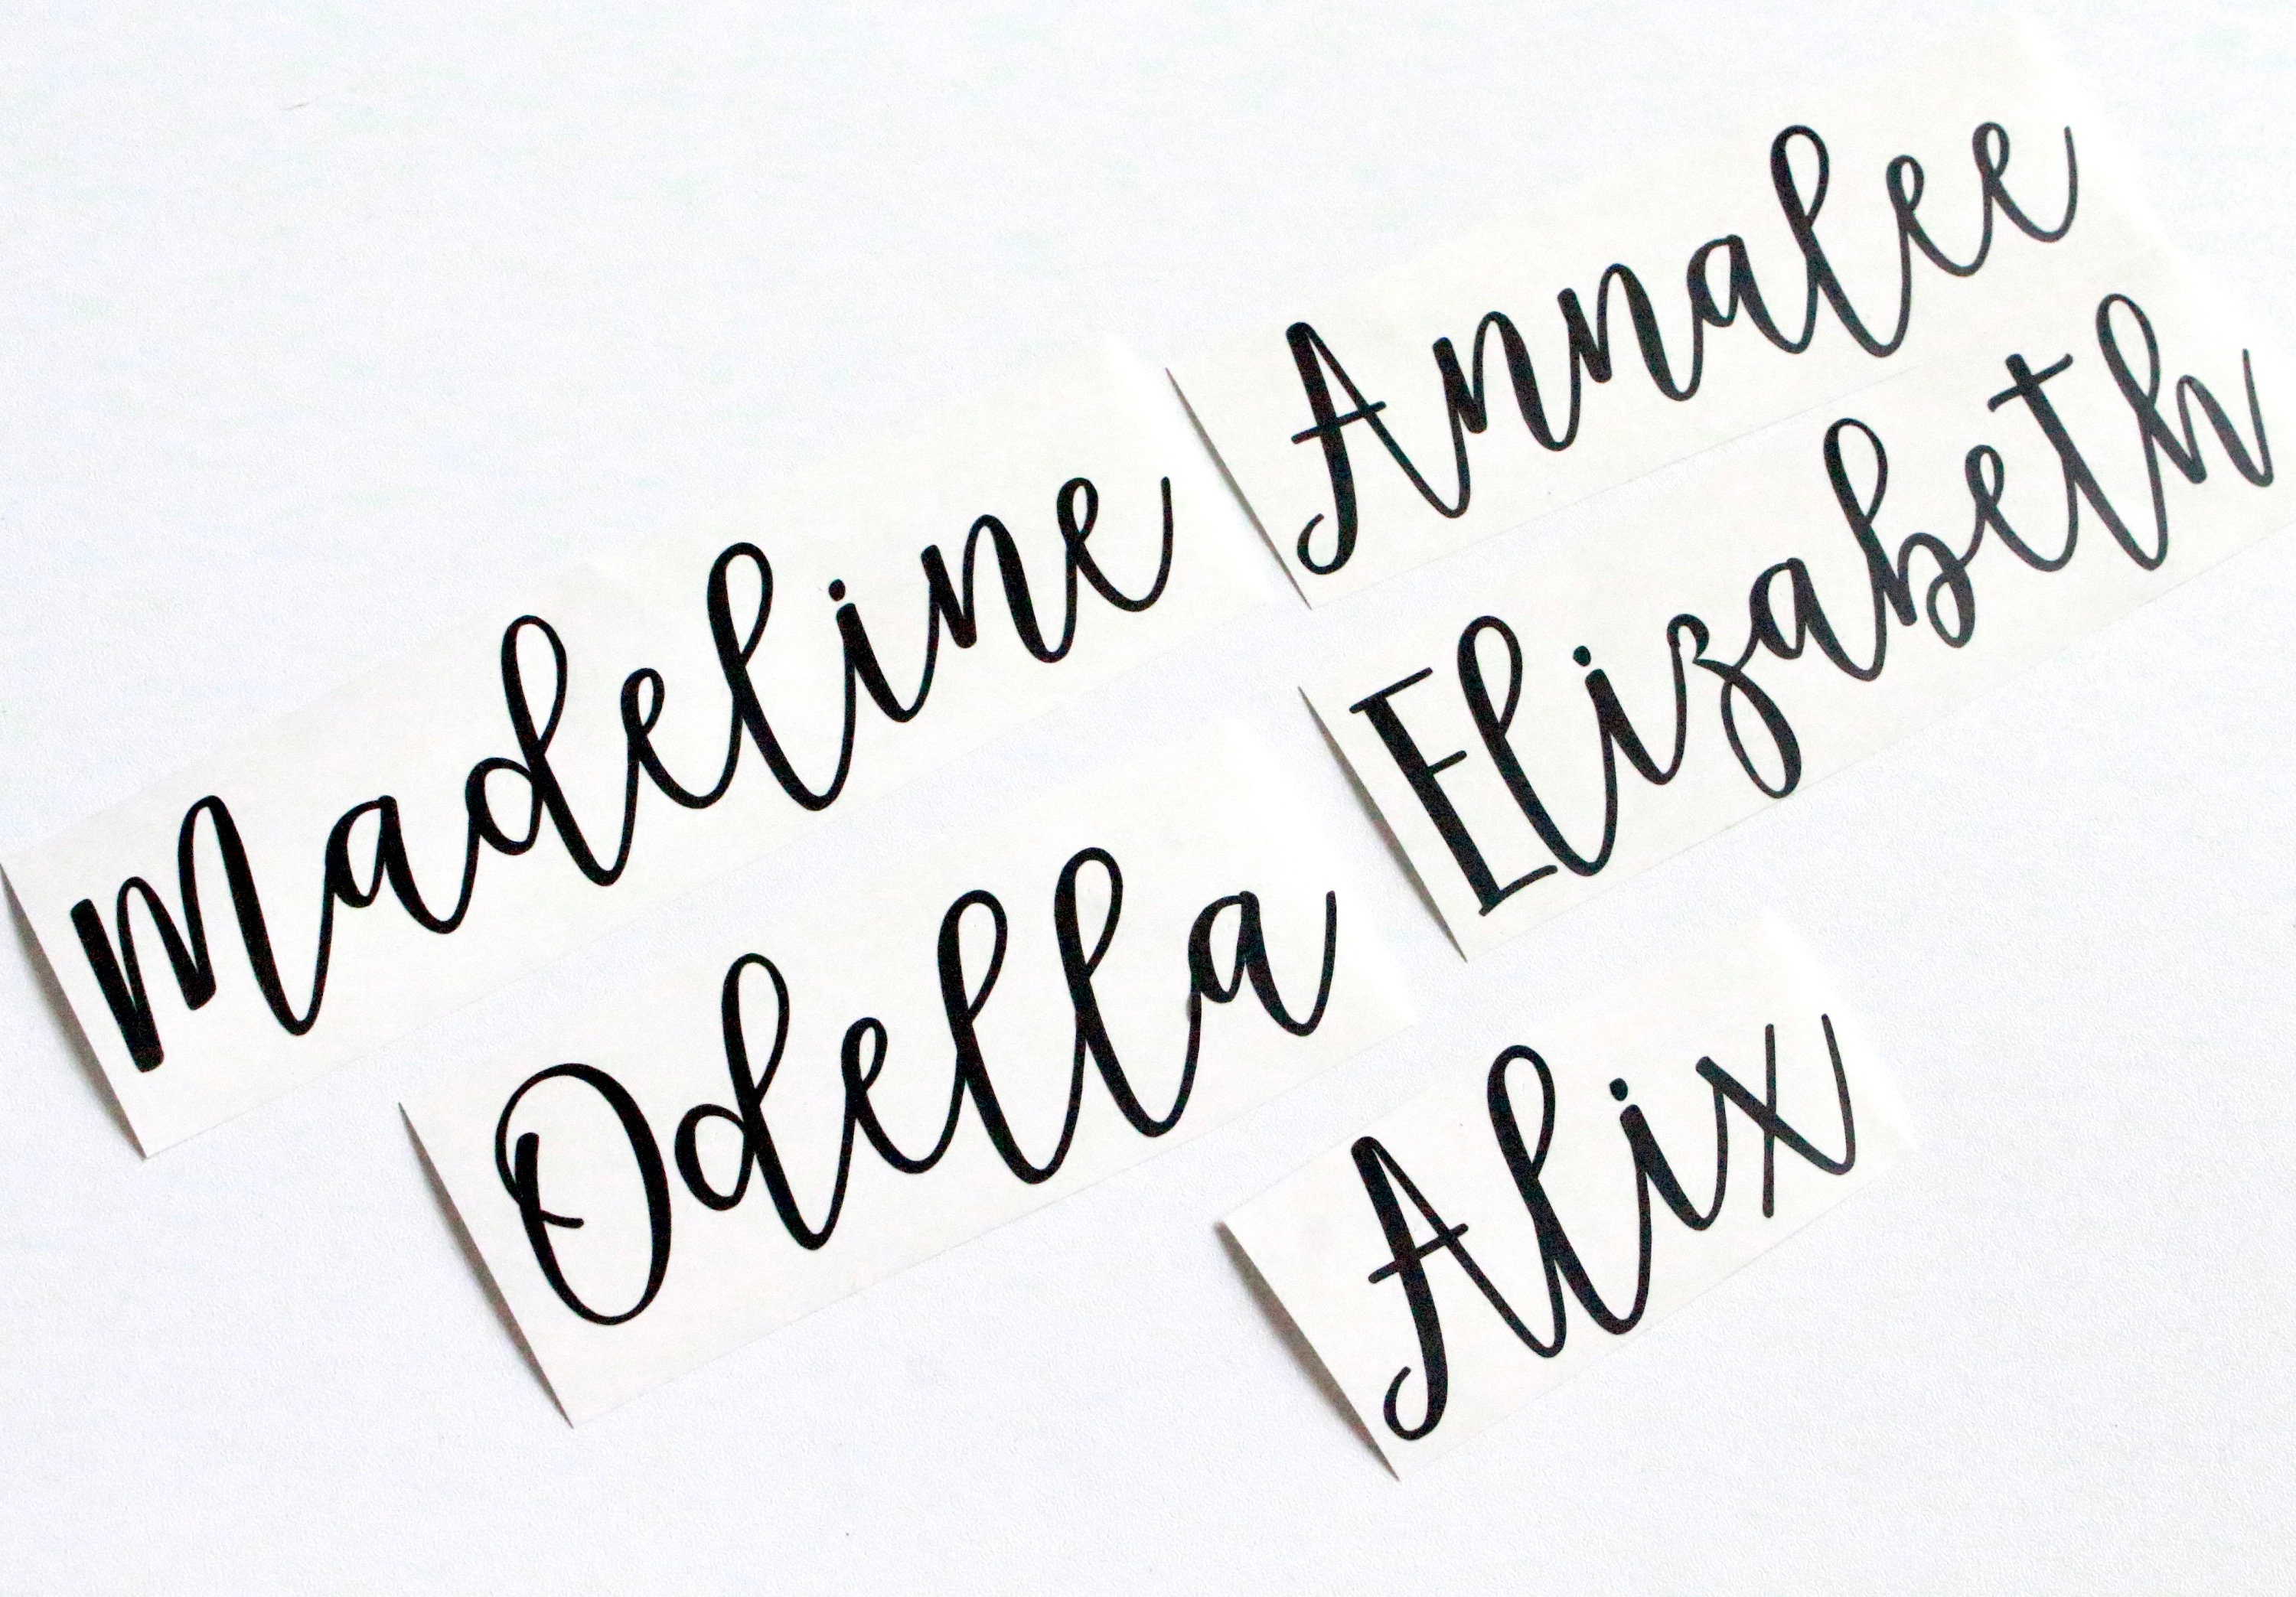 Annalee
Madeline
Elizabeth
Odella
Alix